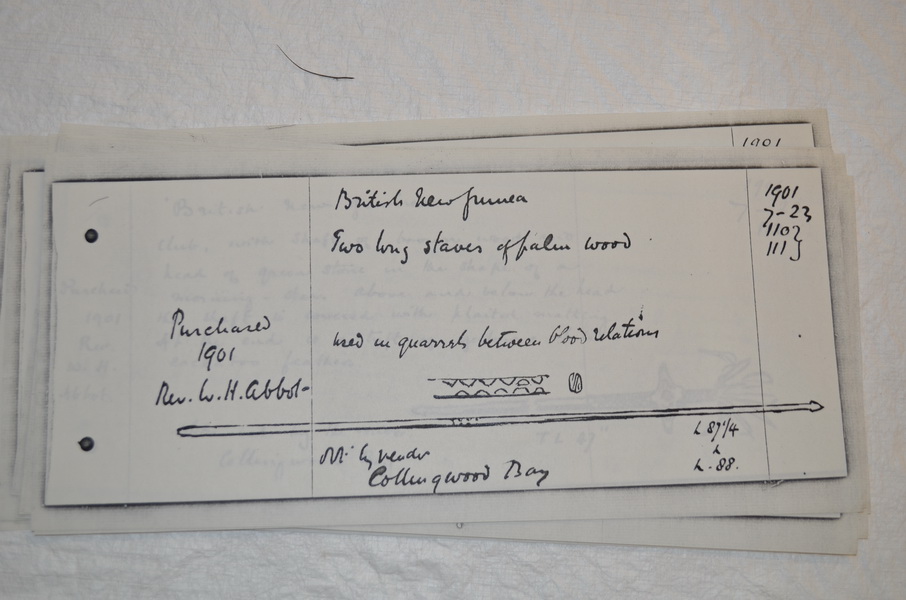 1901
British New Guinea
1901
7-23
110}
111}
Two long staves of palm wood
Purchased
1901
Rev. W. H. Abbot
used in quarrels between blood relations
L 87 1/4
L. 88.
by vendor
Collingwood Bay